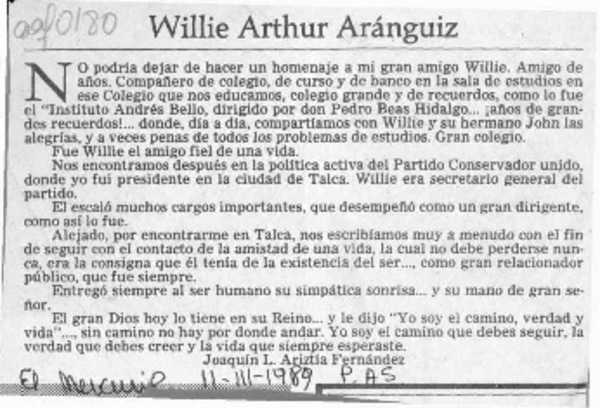 aqf0180
Willie Arthur Aránguiz
NO podría dejar de hacer un homenaje a mi gran amigo Willie. Amigo de
años. Compañero de colegio, de curso y de banco en la sala de estudios en
ese Colegio que nos educamos, colegio grande y de recuerdos, como lo fue
el "Instituto Andrés Bello, dirigido por don Pedro Beas Hidalgo... ¡años de gran-
des recuerdos!... donde, día a día, compartíamos con Willie y su hermano John las
alegrías, y a veces penas de todos los problemas de estudios. Gran colegio.
Fue Willie el amigo fiel de una vida.
Nos encontramos después en la política activa del Partido Conservador unido,
donde yo fui presidente en la ciudad de Talca. Willie era secretario general del
partido.
El escaló muchos cargos importantes, que desempeñó como un gran dirigente,
como así lo fue.
Alejado, por encontrarme en Talca, nos escribíamos muy a menudo con el fin
de seguir con el contacto de la amistad de una vida, la cual no debe perderse nun-
ca, era la consigna que él tenía de la existencia del ser..., como gran relacionador
público, que fue siempre.
Entregó siempre al ser humano su simpática sonrisa... y su mano de gran se-
ñor.
El gran Dios hoy lo tiene en su Reino... y le dijo "Yo soy el camino, verdad y
vida"..., sin camino no hay por donde andar. Yo soy el camino que debes seguir, la
verdad que debes creer y la vida que siempre esperaste.
Joaquín L. Ariztía Fernández
El Mercurio 11-III-1989 P. A5